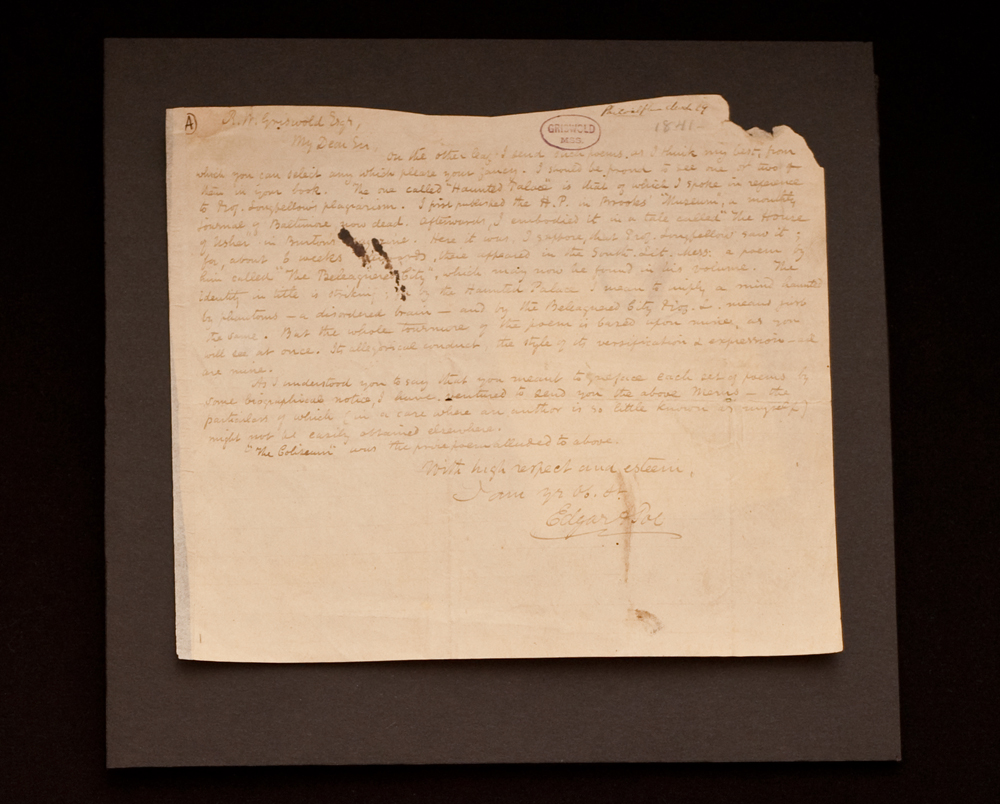 A
R. W. Griswold Esqr,
1841
GRISWOLD
MSS.
My Dear Sir,
On the other leaf I send such poems as I think my best, from
which you can select any which please your fancy. I should be proud to see one or two of
them in your book. The one called "Haunted Palace" is that of which I spoke in reference
to Prof. Longfellow's plagiarism. I first published the H.P. in Brooks' "Museum", a monthly
journal of Baltimore, now dead. Afterwards, I embodied it in a tale called "The House
of Usher" in Burton's. Here it was, I suppose, that Prof. Longfellow saw it;
for, about 6 weeks, there appeared in the South. Lit. Mess. a poem by
him called "The Beleaguered City", which may now be found in his volume. The
identity in title is striking; by the Haunted Palace I mean to imply a mind haunted
by phantoms — a disordered brain — and by the Beleaguered City Prof. L. means just
the same. But the whole tournure of the poem is based upon mine, as you
will see at once. Its allegorical conduct, the style of its versification & expression — all
are mine.
As I understood you to say that you meant to preface each set of poems by
some biographical notice, I have ventured to send you the above memo — the
particulars of which (in a case where an author is so little known as myself)
might not be easily obtained elsewhere.
"The Coliseum" was the prize poem alluded to above.
With high respect and esteem,
I am yr Ob. St.
Edgar A Poe